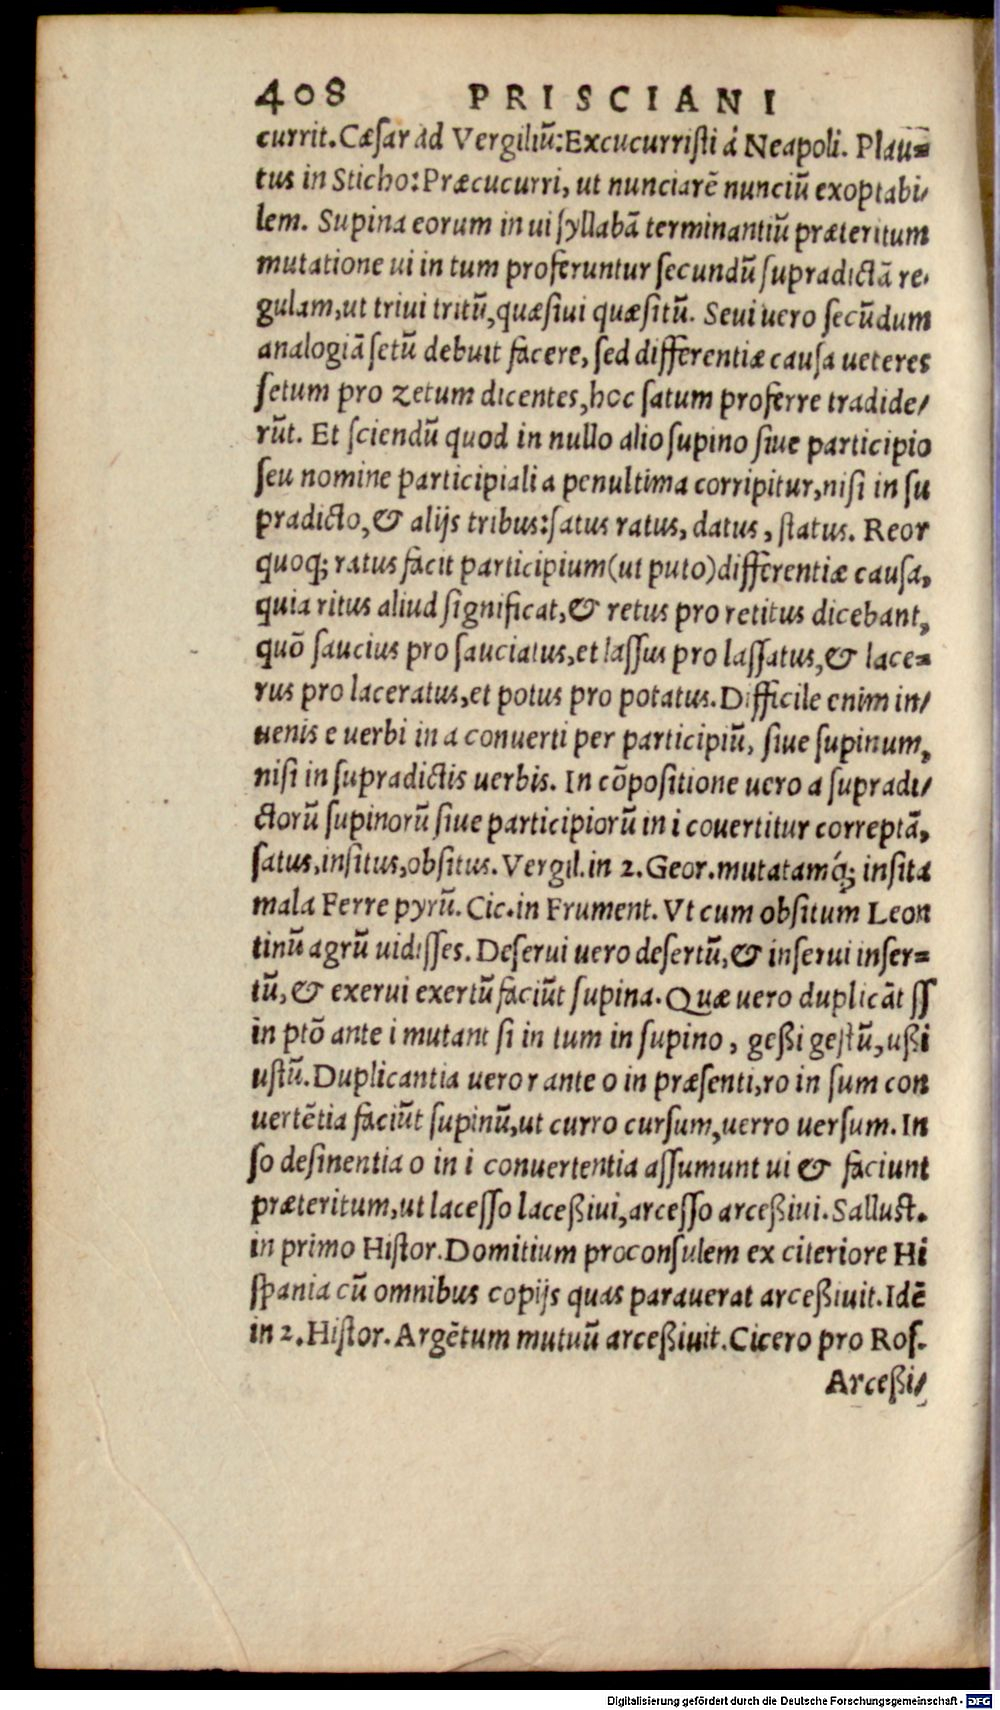 408 PRISCIANI
currit. Cæſar ad Vergiliũ: Excucurriſti à Neapoli. Plau=
tus in Sticho: Præcucurri, ut nunciarẽ nunciũ exoptabi/
lem. Supina eorum in ui ſyllabã terminantiũ præteritum
mutatione ui in tum proferuntur ſecundũ ſupradictã re/
gulam, ut trivi tritũ, quæſiui quæſitũ. Seui uero ſecũdum
analogiã ſetũ debuit facere, ſed differentiæ cauſa ueteres
ſetum pro zetum dicentes, hoc ſatum proferre tradide/
rũt. Et ſciendũ quod in nullo alio ſupino ſiue participio
ſeu nomine participiali a penultima corripitur, niſi in ſu
pradicto, & alijs tribus: ſatus ratus, datus, ſtatus. Reor
quoq; ratus facit participium (ut puto) differentiæ cauſa,
quia ritus aliud ſignificat, & retus pro retitus dicebant,
quõ ſaucius pro ſauciatus, et laſſus pro laſſatus, & lace=
rus pro laceratus, et potus pro potatus. Difficile enim in/
uenis e uerbi in a conuerti per participiũ, ſiue ſupinum,
niſi in ſupradictis uerbis. In cõpoſitione uero a ſupradi/
ctorũ ſupinorũ ſiue participiorũ in i couertitur correptã,
ſatus, inſitus, obſitus. Vergil. in 2. Geor. mutatamq́; inſita
mala Ferre pyrũ. Cic. in Frument. Vt cum obſitum Leon
tinũ agrũ uidiſſes. Deſerui uero deſertũ, & inſerui inſer=
tũ, & exerui exertũ faciũt ſupina. Quæ uero duplicãt ſſ
in ptõ ante i mutant ſi in tum in ſupino, geßi geſtũ, ußi
uſtũ. Duplicantia uero r ante o in præſenti, ro in ſum con
uertẽtia faciũt ſupinũ, ut curro curſum, uerro uerſum. In
ſo deſinentia o in i conuertentia aſſumunt ui & faciunt
præteritum, ut laceſſo laceßiui, arceſſo arceßiui. Salluſt.
in primo Hiſtor. Domitium proconſulem ex citeriore Hi
ſpania cũ omnibus copijs quas parauerat arceßiuit. Idẽ
in 2. Hiſtor. Argẽtum mutuũ arceßiuit. Cicero pro Roſ.
Arceßi/
Digitalisierung gefördert durch die Deutsche Forschungsgemeinschaft - DFG